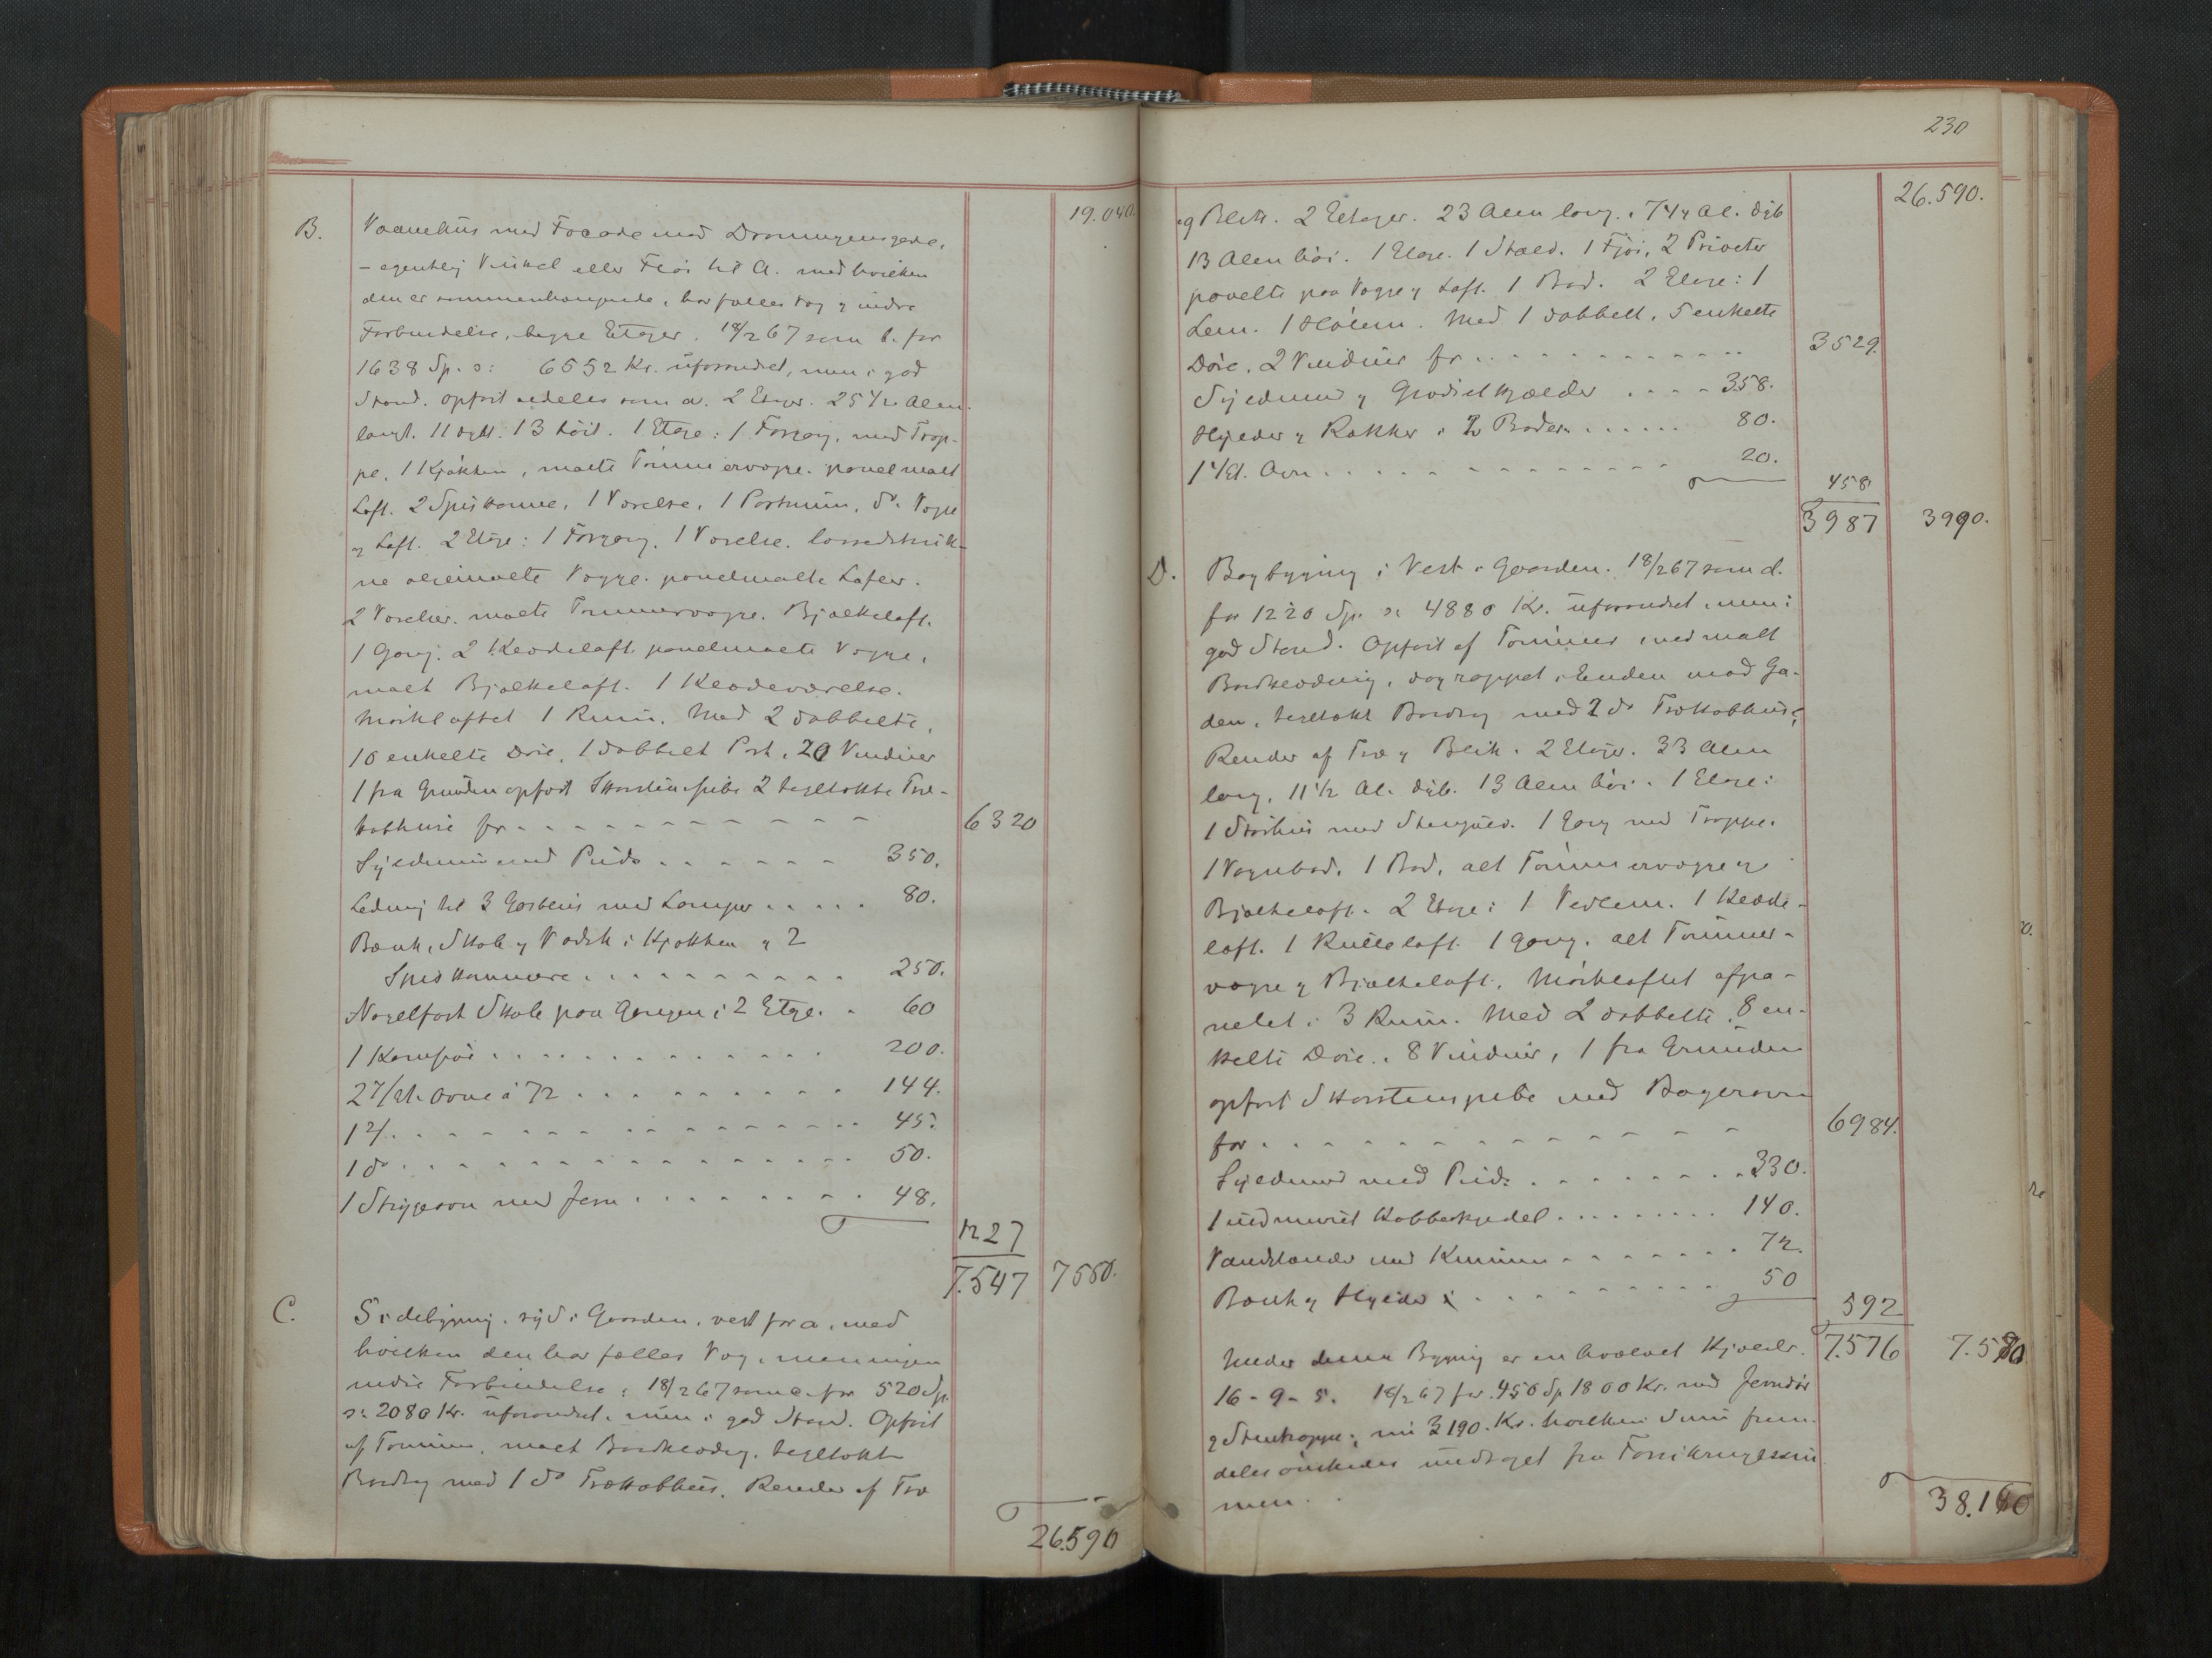 19.040.
B. Vaanehus med Facade mod Dronningensgade,
– egentlig Vinkel eller Fløi til A. med hvilken
den er sammenhængende, har fælles Tag og indre
Forbindelse, begge Etager. 18/2 67 som b. for
1638 Sp. ɔ: 6552 Kr. uforandret, nu i god
Stand. Opført ligeledes som a. 2 Etager. 25 1/2 Alen
langt. 11 dybt. 13 høit. 1 Etage: 1 Forgang, med Trap-
pe, 1 Kjøkken, malte Tømmervægge. panelmalt
Loft. 2 Spiskamre, 1 Værelse, 1 Portrum, do Vægge
og Loft. 2 Etage: 1 Forgang. 1 Værelse. lærredstruk-
ne oliemalte Vægge. panelmalte Lofter.
2 Værelser. malte Tømmervægge. Bjælkeloft.
1 Gang. 2 Klædeloft. panelmalte Vægge,
malt Bjælkeloft. 1 Klædeværelse.
Mørkloftet 1 Rum. Med 2 dobbelte,
10 enkelte Døre, 1 dobbelt Port, 20 Vinduer
1 fra Grunden opført Skorstenspibe 2 tegltakte Træ-
kobhuse for - - - - - - - - - - - 6320
Syldmur med Puds . . . . . . 350.
Ledning til 3 Gasblus med Lamper . . . . . 80.
Bænk, Skab og Vadsk i Kjøkken og 2
Spiskammere . . . . . . . . . . 250.
Nagelfast Skab paa Gangen i 2 Etge. . 60
1 Komfør . . . . . . . . . . . . 200.
2 7/Et. Ovne à 72 . . . . . . . . . . 144.
1 2/. . . . . . . . . . . . . . . . . 45.
1 do . . . . . . . . . . . . . . . . 50.
1 Strygeovn med Jern . . . . . . . . . 48.
1227
7.547 7550.
C. Sidebygning, syd i Gaarden, vest for a, med
hvilken den har fælles Væg, men ingen
indre Forbindelse; 18/2 67 som c. for 520 Sp.
ɔ: 2080 Kr. uforandret, nu i god Stand. Opført
af Tømmer, malt Bordklædng. tegltakt
Bordtag med 1 do Trækobhus. Render af Træ
26.590
230
26.590.
og Blik. 2 Etager. 23 Alen lang, 7 1/4 Al. dyb
13 Alen høi. 1 Etage. 1 Stald. 1 Fjøs, 2 Priveter
panelte paa Vægge og Loft. 1 Bod. 2 Etage: 1
Lem. 1 Hølem. Med 1 dobbelt, 5 enkelte
Døre, 2 Vinduer for . . . . . . . . . . . 3529.
Syldmur og Gjødselkjælder . . . . 358.
Hylder og Rækker i 2 Boder . . . . . . 80.
1 1/Et. Ovn . . . . . . . . . . . . . . 20.
458
3987 3990.
D. Bagbygning i Vest i Gaarden. 18/2 67 som d.
for 1220 Sp. ɔ: 4880 Kr. uforandret, nu i
god Stand. Opført af Tømmer med malt
Bordklædning, i Enden mod Ga-
den, tegltakt Bordtag med 2 do Trækobhuse,
Render af Træ og Blik. 2 Etager. 33 Alen
lang, 11 1/2 Al. dyb. 13 Alen høi. 1 Etage:
1 Staihus med Stengulv. 1 Gang med Trappe.
1 Vognbod, 1 Bod, alt Tømmervægge og
Bjælkeloft. 2 Etage: 1 Vedlem. 1 Klæde-
loft. 1 Rulleloft. 1 Gang. alt Tømmer-
vægge og Bjælkeloft. Mørkloftet afpa-
nelet i 3 Rum. Med 2 dobbelte, 8 en-
kelte Døre, 8 Vinduer, 1 fra Grunden
opført Skorstenspibe med Bagerovn
for . . . . . . . . . . . . . . . . 6984.
Syldmur med Puds . . . . . . . . . 330.
1 indmuret Kobberkjedel . . . . . . . . . 140.
Vandstander med Kummen . . . . . . . 72.
Bænk og Hylder . . . . . . . . . . . . 50
592
7.576 7.580
Under denne Bygning er en hvælvet Kjælder.
16 - 9 - 5. 18/2 67 for 450 Sp 1800 Kr. med Jerndør
og Stentrappe; nu 3190. Kr. hvilken Sum frem-
deles ønskedes undtaget fra Forsikringssum
men.
38.160